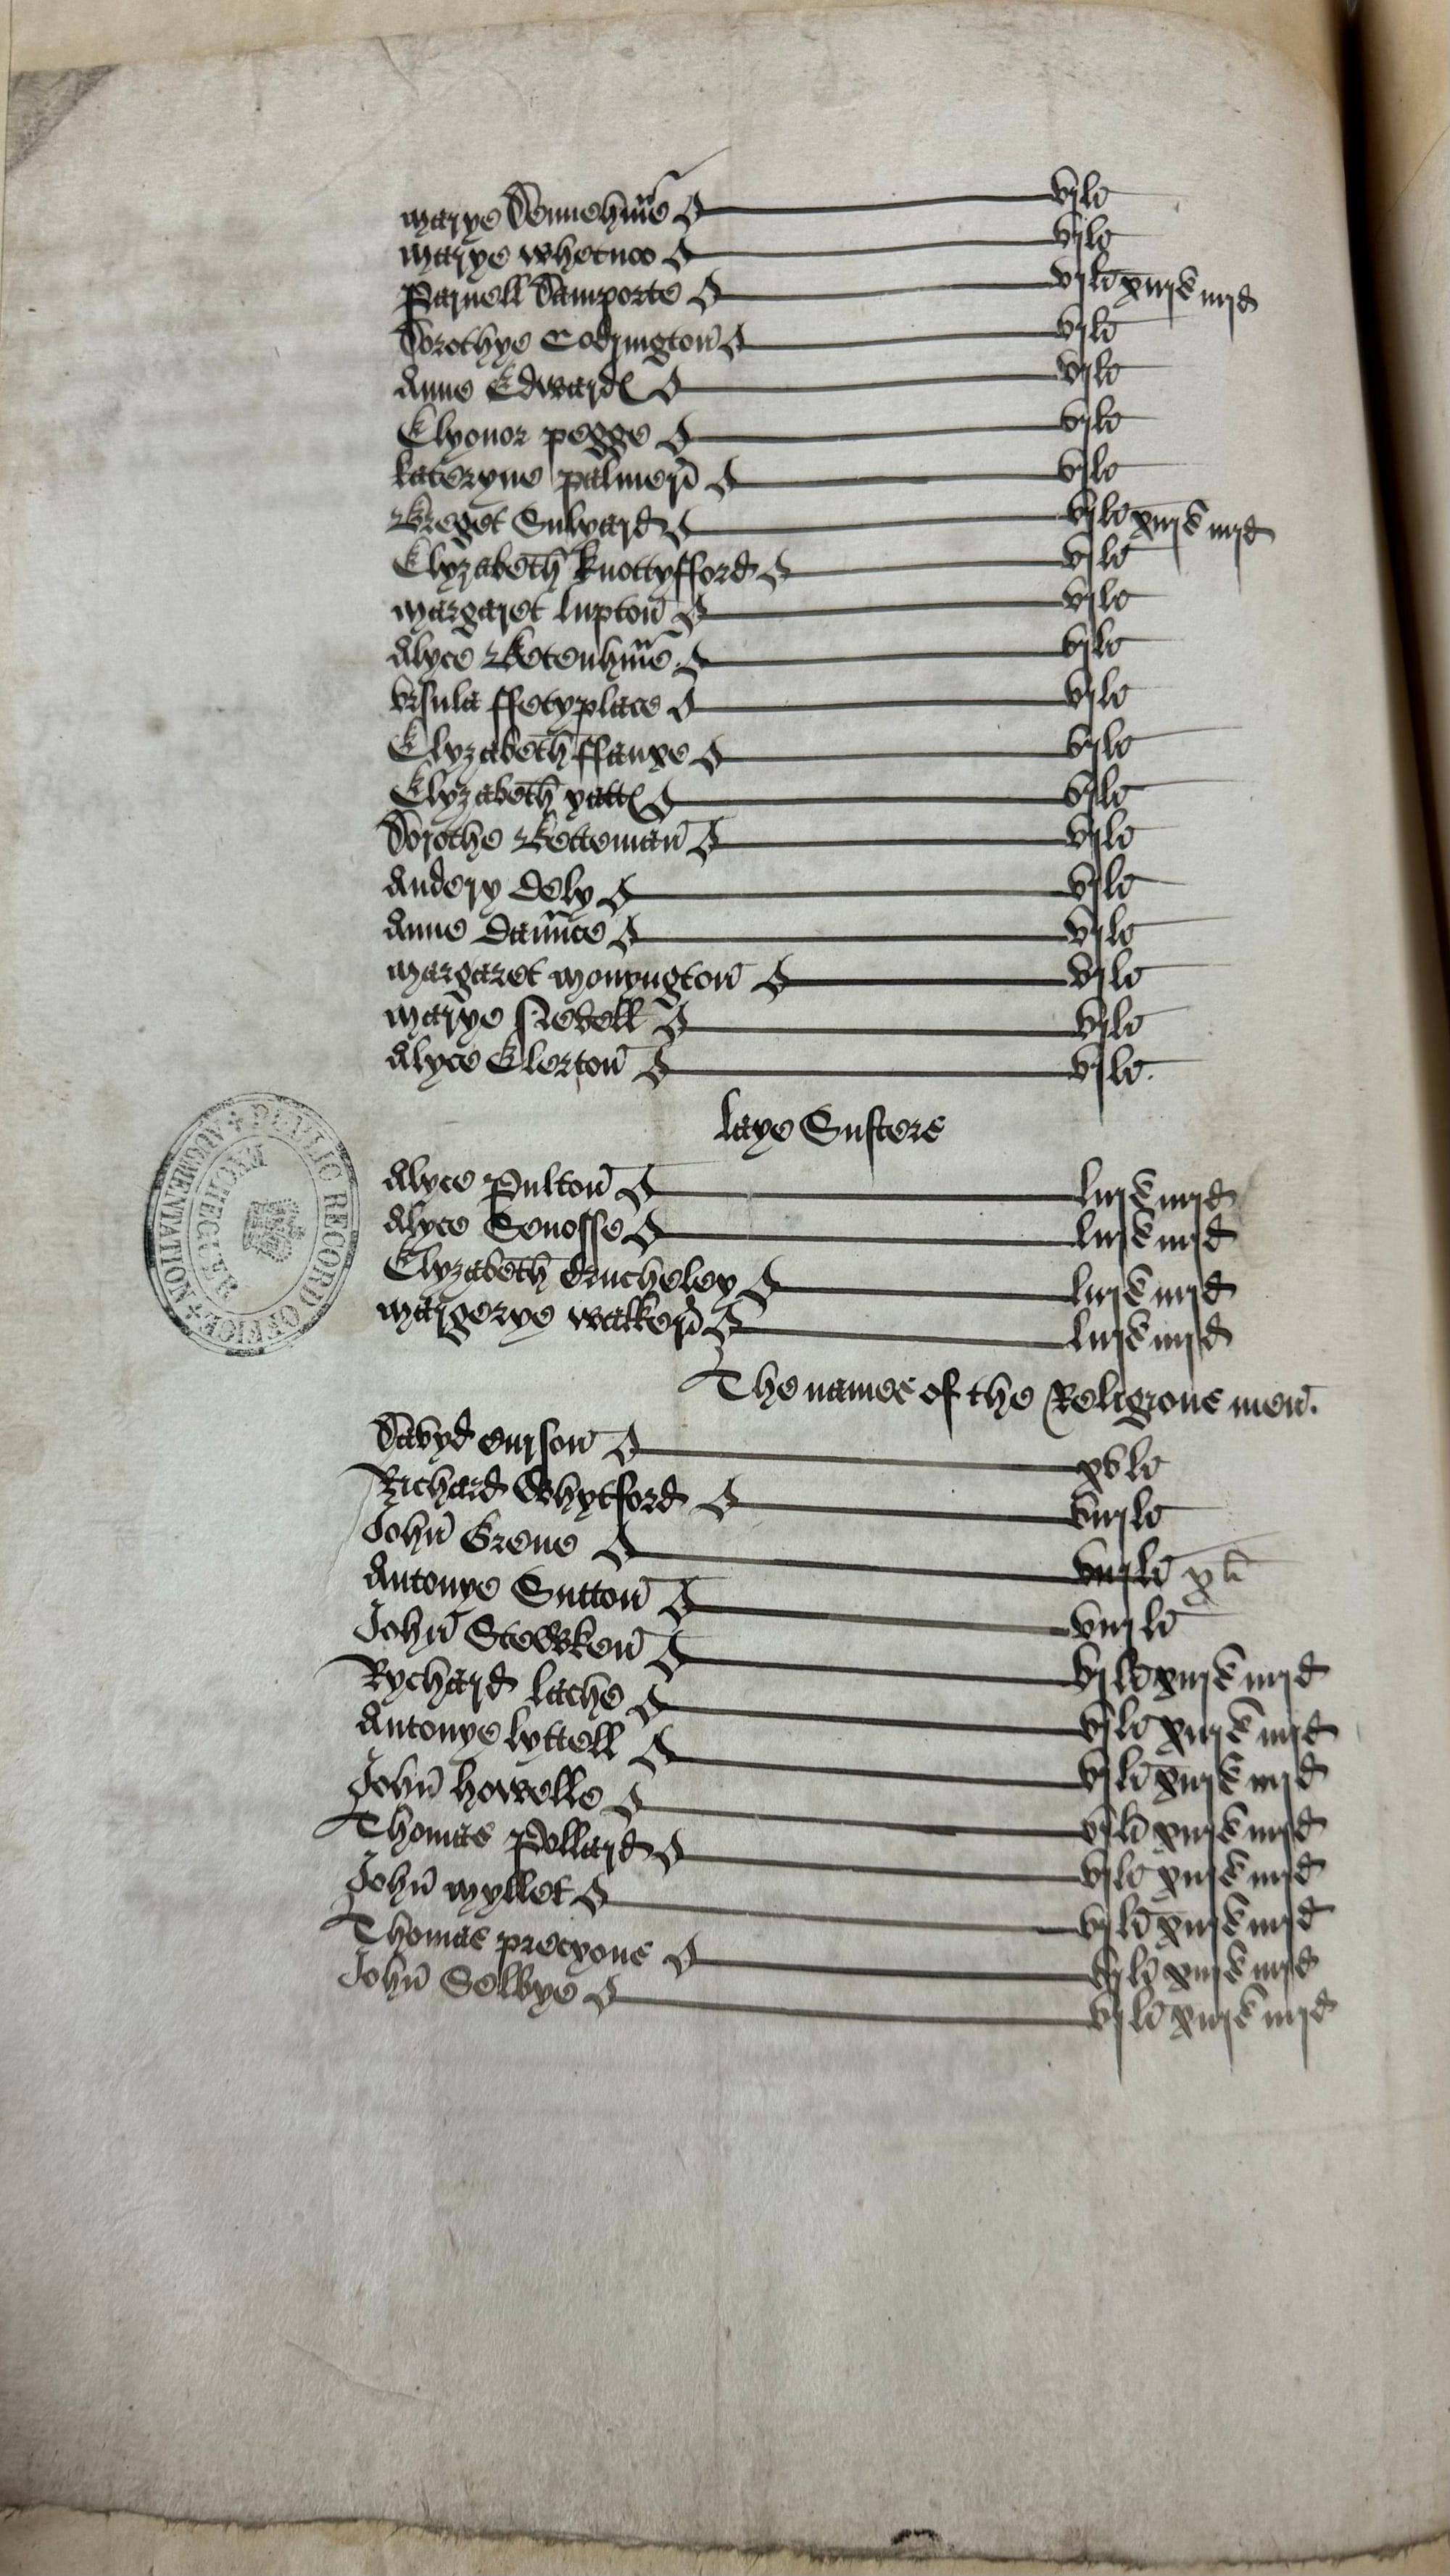 Marye Dennehme vj li
Marye Whetnoo vj li
Parnell Damporte vj li xiij s iiij d
Dorothye Codrington vj li
Anne Edwardes vj li
Elyonor Pegge vj li
Kateryne Palmer vj li
Breget Sulyard vj li xiij s iiij d
Elyzabeth Knottyfford vj li
Margaret Lupton vj li
Alyce Betenhme vj li
Vrsula ffetyplace vj li
Elyzabeth ffauxe vj li
Elyzabeth yattes vj li
Dorothe Betteman vj li
Audery Dely vj li
Anne Daunce vj li
Margaret Monyngton vj li
Marye Nevell vj li
Alyce Elerton vj li
Laye Susters
Alyce Pulton liij s iiij d
Alyce Senosse liij s iiij d
Elyzabeth Crucheley liij s iiij d
Margerye Walker liij s iiij d
The names of the Religious men
Davyd Curson xv li
Richard Whytford viij li
John Grene viij li x li
Antonye Sutton viij li
John Stewken vj li xiij s iiij d
Rychard Lache vj li xiij s iiij d
Antonye Lyttell vj li xiij s iiij d
John Howelle vj li xiij s iiij d
Thomas Pollard vj li xiij s iiij d
John Myllet vj li xiij s iiij d
Thomas Precyous vj li xiij s iiij d
John Selbye vj li xiij s iiij d
PUBLIC RECORD OFFICE
AUGMENTATION
ARCHEQUER